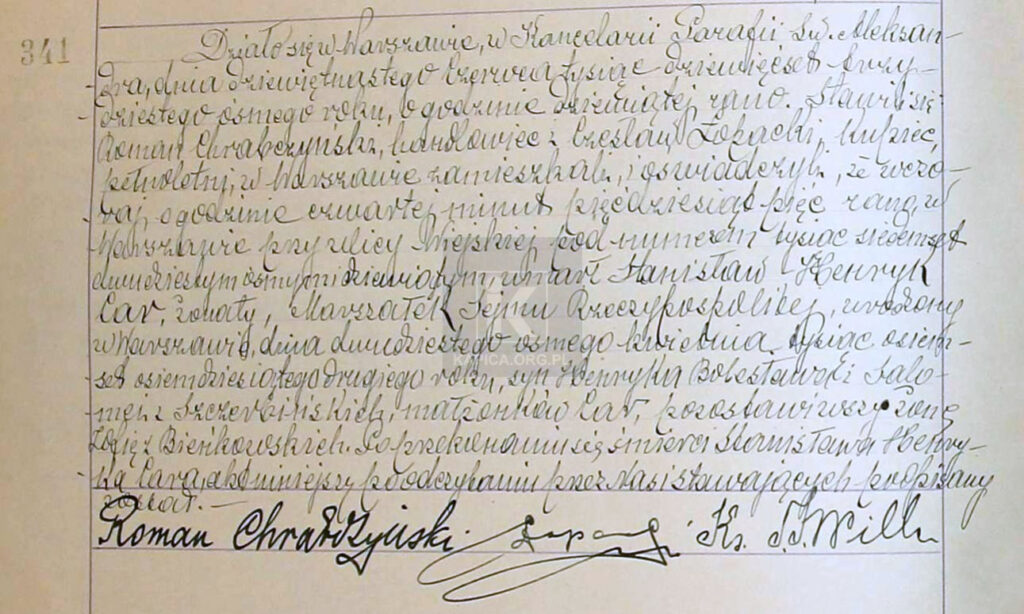 341
Działo się w Warszawie, w Kancelarii Parafii Św. Aleksan-
dra, dnia dziewiętnastego Czerwca tysiąc dziewięćset trzy-
dziestego ósmego roku, o godzinie dziewiątej rano. Stawili się
Roman Chrabczyński, handlowiec i Czesław Łopacki, kupiec,
pełnoletni, w Warszawie zamieszkali, i oświadczyli, że wczo-
raj, o godzinie czwartej minut pięćdziesiąt pięć rano, w
Warszawie przy ulicy Wiejskiej pod numerem tysiąc siedemset
dwudziestym ósmym i dziewiątym, umarł Stanisław Henryk
Car, żonaty, Marszałek Sejmu Rzeczypospolitej, urodzony
w Warszawie, dnia dwudziestego ósmego kwietnia tysiąc osiem-
set osiemdziesiątego drugiego roku, syn Henryka Bolesława i Salo-
mei z Szczerbińskich, małżonków Car, pozostawiwszy żonę
Zofię z Bieńkowskich. Po przekonaniu się o śmierci Stanisława Henry-
ka Cara, akt niniejszy po odczytaniu przez Nas i stawających podpisany
został. —
Roman Chrabczyński. Ks.
K
KAPICA.ORG.PL